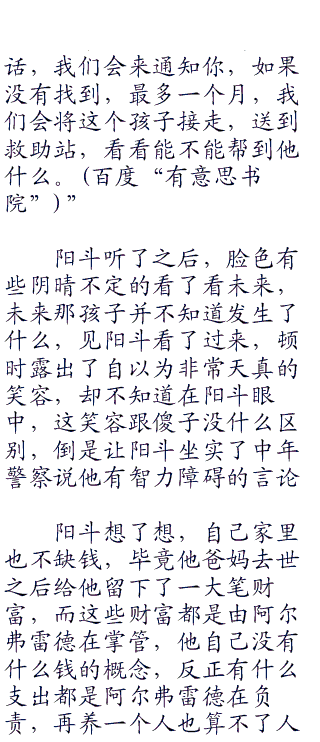 话，我们会来通知你，如果
没有找到，最多一个月，我
们会将这个孩子接走，送到
救助站，看看能不能帮到他
什么。(百度“有意思书
院”)”
阳斗听了之后，脸色有
些阴晴不定的看了看未来，
未来那孩子并不知道发生了
什么，见阳斗看了过来，顿
时露出了自以为非常天真的
笑容，却不知道在阳斗眼
中，这笑容跟傻子没什么区
别，倒是让阳斗坐实了中年
警察说他有智力障碍的言论
阳斗想了想，自己家里
也不缺钱，毕竟他爸妈去世
之后给他留下了一大笔财
富，而这些财富都是由阿尔
弗雷德在掌管，他自己没有
什么钱的概念，反正有什么
支出都是阿尔弗雷德在负
责，再养一个人也算不了人